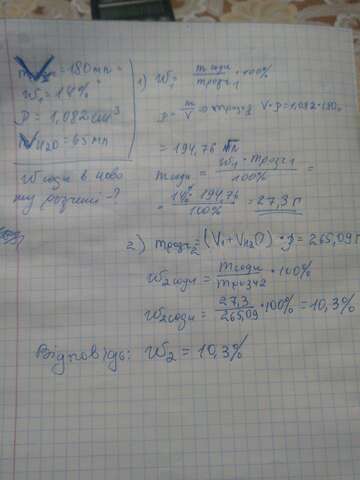 V = 180 мл
W₁ = 14%
ρ = 1,082 см³
V H2O = 65 мл
W соди в ново
му розчині - ?
1) W₁ = m соди / m розч1 · 100%
ρ = m/V => m розч1 = V · ρ = 1,082 · 180 =
= 194,76 г
m соди = W₁ · m розч1 / 100% =
= 14% · 194,76 / 100% = 27,3 г
2) m розч2 = (V₁ + V H2O) · ρ = 265,09 г
W₂ соди = m соди / m розч2 · 100%
W₂ соди = 27,3 / 265,09 · 100% = 10,3%
Відповідь: W₂ = 10,3%